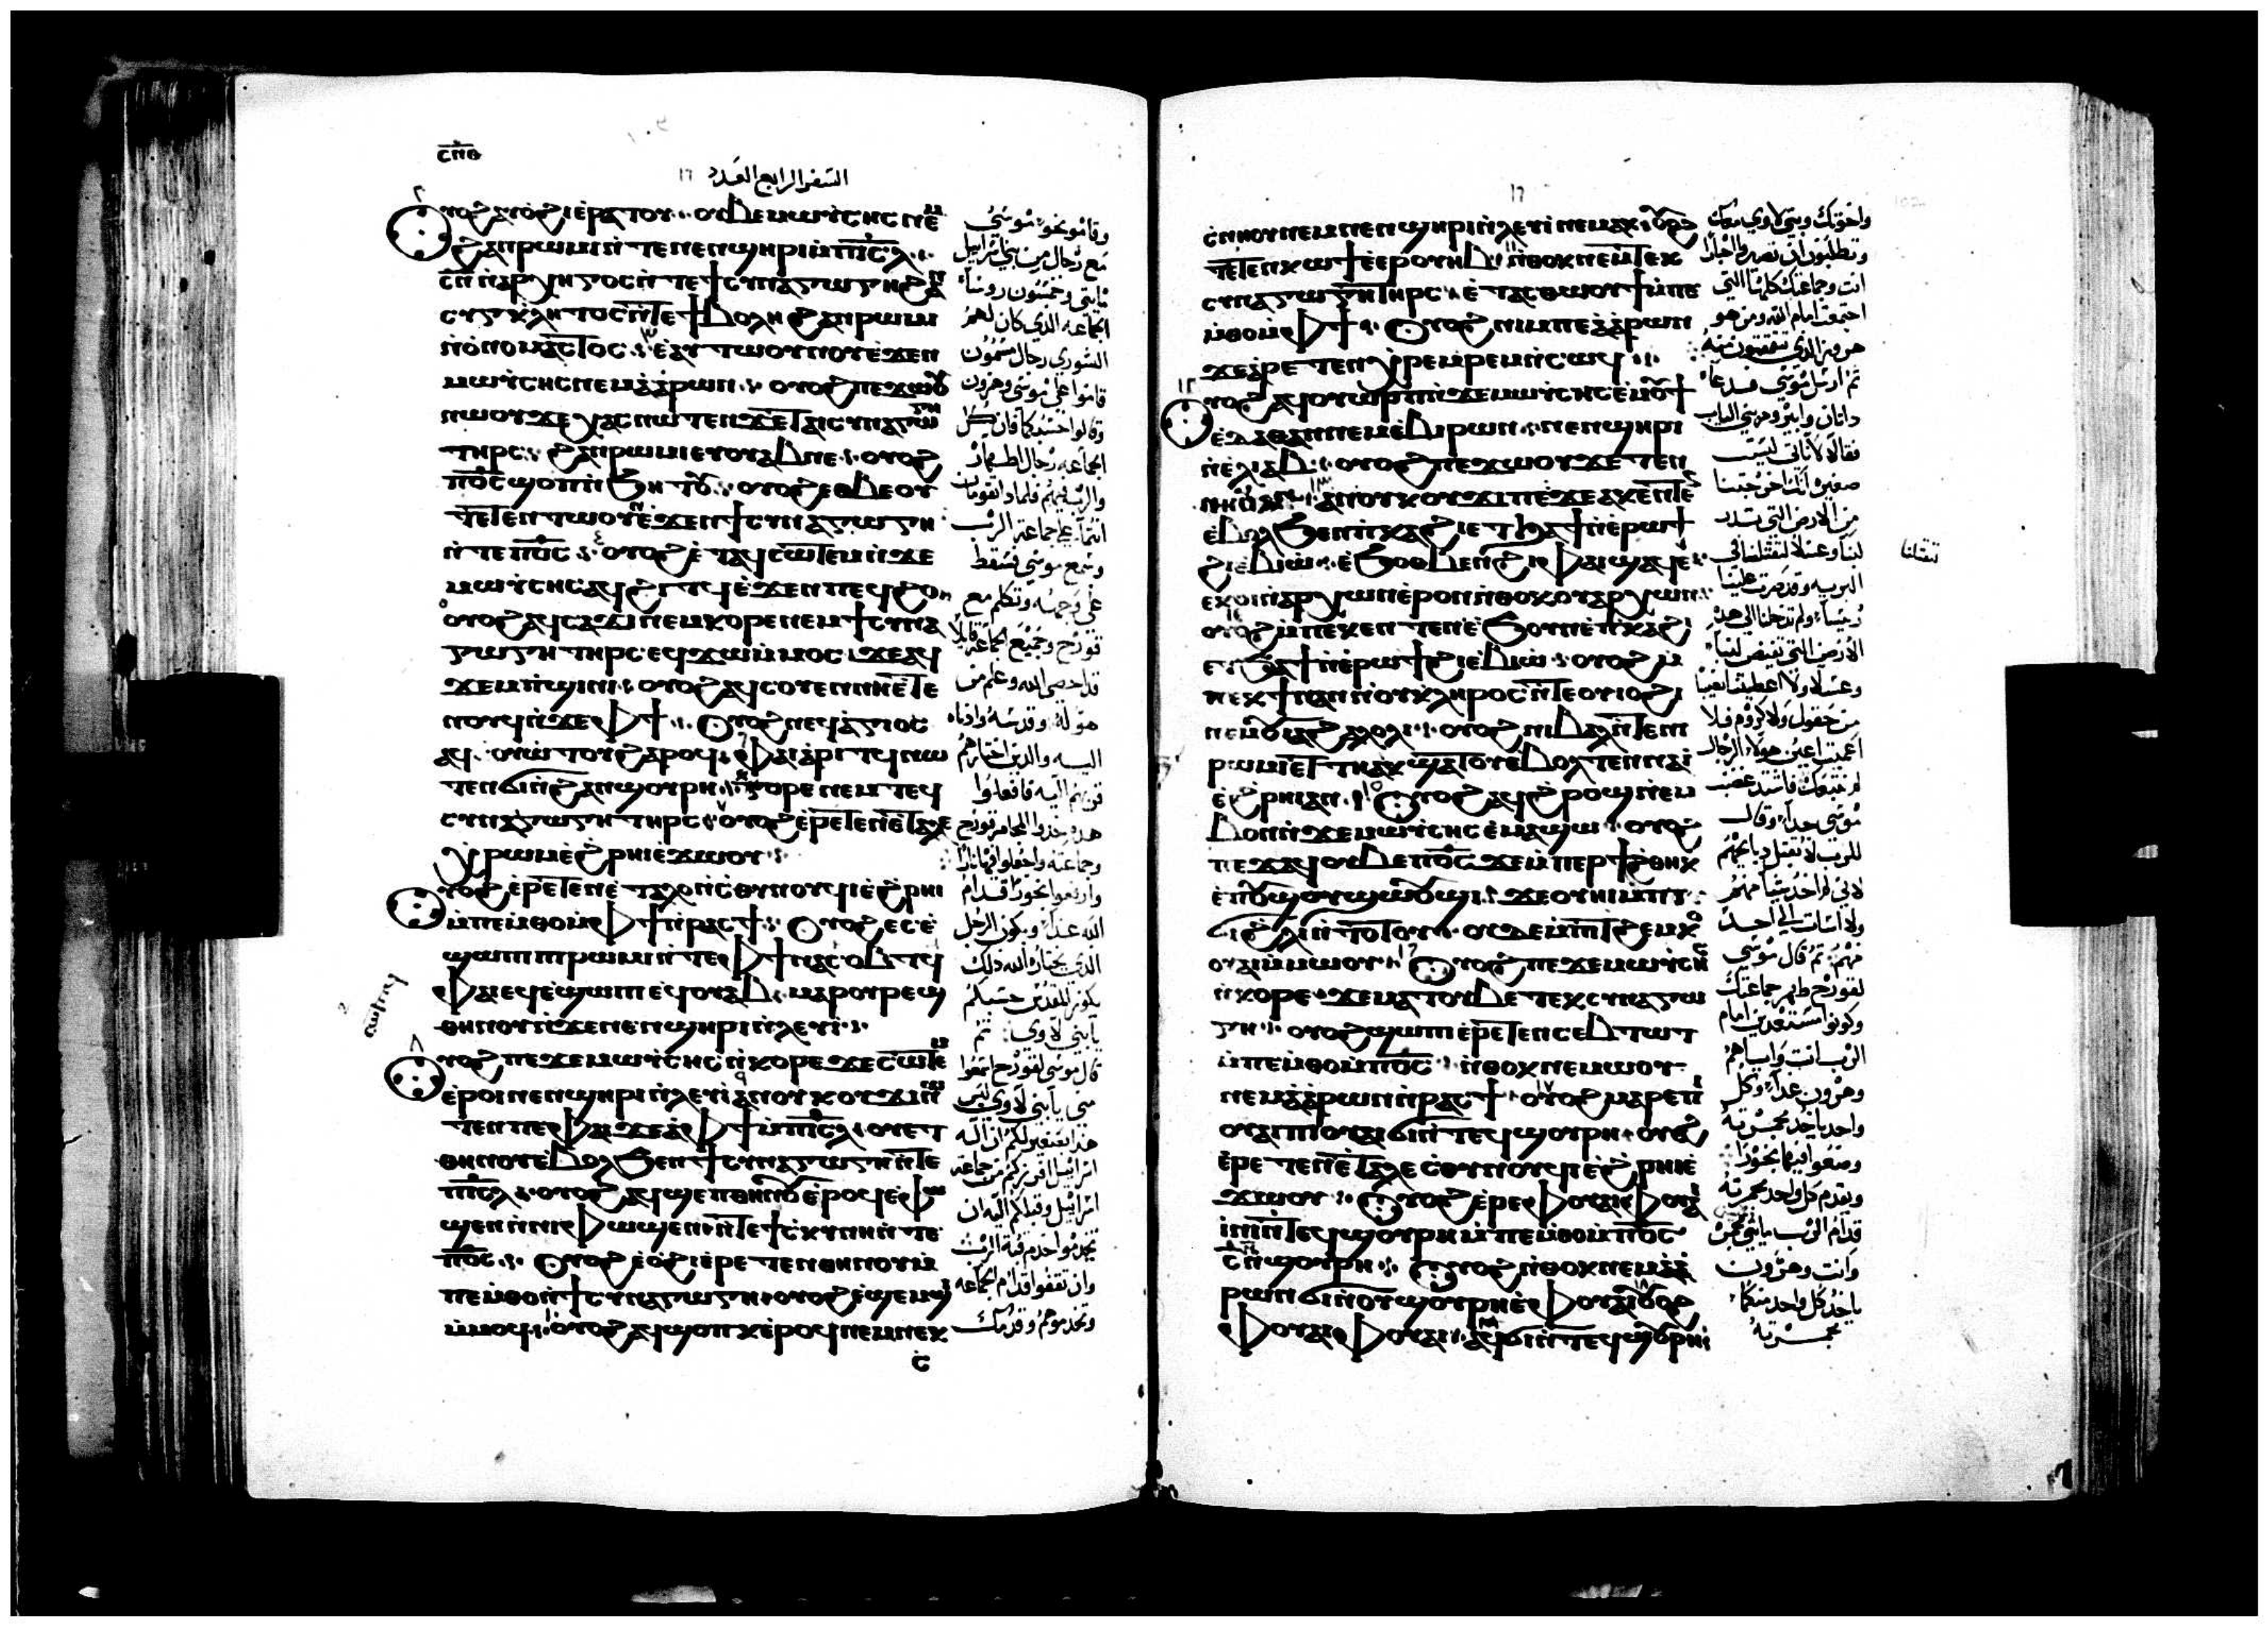 ⲥⲡⲑ
السفر الرابع العدد ١٦
ⲟⲩⲟϩ ⲁⲩⲟϩⲓ ⲉⲣⲁⲧⲟⲩ ⲟⲩⲃⲉ ⲙⲱⲩⲥⲏⲥ ⲛⲉⲙ
ϩⲁⲛⲣⲱⲙⲓ ⲛⲧⲉ ⲛⲉⲛϣⲏⲣⲓ ⲙⲡⲓⲥⲗ
ⲥⲛ ⲛⲁⲣⲭⲏⲅⲟⲥ ⲛⲧⲉ ϯⲥⲩⲛⲁⲅⲱⲅⲏ ϩⲁⲛ
ⲥⲩⲅⲕⲗⲏⲧⲟⲥ ⲛⲧⲉ ϯⲃⲟⲩⲗⲏ ϩⲁⲛⲣⲱⲙⲓ
ⲛⲟⲛⲟⲙⲁⲥⲧⲟⲥ ⲉⲁⲩⲧⲱⲟⲩⲛⲟⲩ ⲉϫⲉⲛ
ⲙⲱⲩⲥⲏⲥ ⲛⲉⲙ ⲁⲁⲣⲱⲛ ⲟⲩⲟϩ ⲡⲉϫⲱⲟⲩ
ⲛⲱⲟⲩ ϫⲉ ⲭⲁⲥ ⲛⲱⲧⲉⲛ ϫⲉ ⲧⲁⲓⲥⲩⲛⲁⲅⲱⲅⲏ
ⲧⲏⲣⲥ ϩⲁⲛⲣⲱⲙⲓ ⲉⲩⲟⲩⲁⲃ ⲛⲉ ⲟⲩⲟϩ
ⲡⲟⲥ ϣⲟⲡ ⲛϧⲏⲧⲟⲩ ⲟⲩⲟϩ ⲉⲑⲃⲉ ⲟⲩ
ⲧⲉⲧⲉⲛⲧⲱⲟⲩⲛ ⲉϫⲉⲛ ϯⲥⲩⲛⲁⲅⲱⲅⲏ
ⲛⲧⲉ ⲡⲟⲥ ⲟⲩⲟϩ ⲉⲧⲁϥⲥⲱⲧⲉⲙ ⲛϫⲉ
ⲙⲱⲩⲥⲏⲥ ⲁϥϩⲓⲧϥ ⲉϫⲉⲛ ⲡⲉϥϩⲟ
ⲟⲩⲟϩ ⲁϥⲥⲁϫⲓ ⲛⲉⲙ ⲕⲟⲣⲉ ⲛⲉⲙ ϯⲥⲩⲛⲁ
ⲅⲱⲅⲏ ⲧⲏⲣⲥ ⲉϥϫⲱ ⲙⲙⲟⲥ ϫⲉ ⲁϥ
ϫⲉⲙⲡϣⲓⲛⲓ ⲟⲩⲟϩ ⲁϥⲥⲟⲩⲉⲛ ⲛⲏⲉⲧⲉ
ⲛⲟⲩϥ ⲛϫⲉ ⲫϯ ⲟⲩⲟϩ ⲛⲉϥⲁⲅⲓⲟⲥ
ⲁϥⲉⲛⲟⲩ ϩⲁⲣⲟϥ ⲫⲁⲓ ⲁⲣⲓⲧϥ ⲛⲱ
ⲧⲉⲛ ϭⲓ ⲛϩⲁⲛϣⲟⲩⲣⲏ ⲕⲟⲣⲉ ⲛⲉⲙ ⲧⲉϥ
ⲥⲩⲛⲁⲅⲱⲅⲏ ⲧⲏⲣⲥ ⲟⲩⲟϩ ⲉⲣⲉⲧⲉⲛⲉⲧⲁⲗⲉ
ⲭⲣⲱⲙ ⲉϩⲣⲏⲓ ⲉϫⲱⲟⲩ
ⲟⲩⲟϩ ⲉⲣⲉⲧⲉⲛⲉⲧⲁⲗⲟ ⲛⲥⲑⲟⲓⲛⲟⲩϥⲓ ⲉϩⲣⲏⲓ
ⲙⲡⲉⲙⲑⲟ ⲙⲫϯ ⲛⲣⲁⲥϯ ⲟⲩⲟϩ ⲉⲥⲉ
ϣⲱⲡⲓ ⲡⲣⲱⲙⲓ ⲛⲧⲉ ⲫϯ ⲛⲁⲥⲟⲃⲧϥ
ⲫⲁⲓ ⲉϥⲉϣⲱⲡⲓ ⲉϥⲟⲩⲁⲃ ⲙⲁⲣⲟⲩⲣⲉϣ
ⲑⲏⲛⲟⲩ ⲛϫⲉ ⲛⲉⲛϣⲏⲣⲓ ⲛⲗⲉⲩⲓ
ⲟⲩⲟϩ ⲡⲉϫⲉ ⲙⲱⲩⲥⲏⲥ ⲛⲕⲟⲣⲉ ϫⲉ ⲥⲱⲧⲉⲙ
ⲉⲣⲟⲓ ⲛⲉⲛϣⲏⲣⲓ ⲛⲗⲉⲩⲓ ⲁⲛ ⲟⲩⲕⲟⲩϫⲓ ⲛ
ⲧⲉⲛ ⲡⲉ ⲫⲁⲓ ϫⲉ ⲁ ⲫϯ ⲙⲡⲓⲥⲗ ⲟⲩⲉⲧ
ⲑⲏⲛⲟⲩ ⲉⲃⲟⲗ ϧⲉⲛ ϯⲥⲩⲛⲁⲅⲱⲅⲏ ⲛⲧⲉ
ⲡⲓⲥⲗ ⲟⲩⲟϩ ⲁϥϣⲉⲡ ⲑⲏⲛⲟⲩ ⲉⲣⲟϥ ⲉ
ϣⲉⲙϣⲓ ⲛⲛⲓϣⲉⲙϣⲓ ⲛⲧⲉ ϯⲥⲕⲩⲛⲏ ⲛⲧⲉ
ⲡⲟⲥ ⲟⲩⲟϩ ⲉⲟϩⲓ ⲉⲣⲉⲧⲉⲛ ⲑⲏⲛⲟⲩ ⲙ
ⲡⲉⲙⲑⲟ ⲛϯⲥⲩⲛⲁⲅⲱⲅⲏ ⲟⲩⲟϩ ⲉϣⲉⲙϣⲓ
ⲙⲙⲟϥ ⲟⲩⲟϩ ⲁϥϣⲟⲡⲕ ⲉⲣⲟϥ ⲛⲉⲙ ⲛⲉⲕ
ⲥ
وقاموا نحو موسى
مع رجال من بني اسراييل
مايتي وخمسون روساء
الجماعه الذي كان لهم
الشورى رجال مسمون
قاموا على موسى وهرون
وقالوا حسبكما فان كل
الجماعه رجال اطهار
والرب فيهم فلماذا تقومان
انتما على جماعة الرب
وسمع موسى فسقط
على وجهه وتكلم مع
قورح وجميع الجماعه قايلا
قد احصى الله وعلم من
هو له وقدسه وادناه
اليه والذين اختارهم
قربهم اليه فافعلوا
هذه خذوا المجامر قورح
وجماعته واجعلوا فيها نارا
وارفعوا بخورا قدام
الله غدا ويكون الرجل
الذي يختاره الله ذلك
يكون للقدس حسبكم
يا بني لاوي ثم
قال موسى لقورح اسمعوا
مني يا بني لاوي ليس
هذا بصغير لكم ان اله
اسراييل افرزكم من جماعة
اسراييل وقبلكم اليه ان
تخدموا خدم قبة الرب
وان تقفوا قدام الجماعه
وتخدموهم وقدمك
١٦
ⲥⲛⲏⲟⲩ ⲛⲉⲙ ⲛⲉⲛϣⲏⲣⲓ ⲛⲗⲉⲩⲓ ⲛⲉⲙⲁⲕ ⲟⲩⲟϩ
ⲧⲉⲧⲉⲛⲕⲱϯ ⲉⲉⲣⲟⲩⲏⲃ ⲛⲑⲟⲕ ⲛⲉⲙ ⲧⲉⲕ
ⲥⲩⲛⲁⲅⲱⲅⲏ ⲧⲏⲣⲥ ⲉⲧⲁⲥⲑⲱⲟⲩϯ ⲙⲡⲉ
ⲙⲑⲟ ⲙⲫϯ ⲟⲩⲟϩ ⲛⲓⲙ ⲡⲉ ⲁⲁⲣⲱⲛ
ϫⲉ ⲁⲣⲉⲧⲉⲛⲭⲣⲉⲙⲣⲉⲙ ⲛⲥⲱϥ
ⲟⲩⲟϩ ⲁϥⲟⲩⲱⲣⲡ ⲛϫⲉ ⲙⲱⲩⲥⲏⲥ ⲉⲙⲟⲩϯ
ⲉⲇⲁⲑⲁⲛ ⲛⲉⲙ ⲉⲃⲓⲣⲱⲛ ⲛⲉⲛϣⲏⲣⲓ
ⲛⲉⲗⲓⲁⲃ ⲟⲩⲟϩ ⲡⲉϫⲱⲟⲩ ϫⲉ ⲧⲉⲛ
ⲛⲏⲟⲩ ⲁⲛ ⲁⲛ ⲟⲩⲕⲟⲩϫⲓ ⲡⲉ ϫⲉ ⲁⲕⲉⲛⲧⲉⲛ
ⲉⲃⲟⲗ ϧⲉⲛ ⲡⲕⲁϩⲓ ⲉⲧϧⲁϯ ⲛⲉⲣⲱϯ
ϩⲓ ⲉⲃⲓⲱ ⲉϧⲟⲑⲃⲉⲛ ϩⲓ ⲡϣⲁϥⲉ
ⲉⲕⲟⲓ ⲛⲁⲣⲭⲱⲛ ⲉⲣⲟⲛ ⲛⲑⲟⲕ ⲟⲩⲁⲣⲭⲱⲛ
ⲟⲩⲟϩ ⲙⲡⲉⲕⲉⲛⲧⲉⲛ ⲉϧⲟⲩⲛ ⲉⲡⲕⲁϩⲓ
ⲉⲧϧⲁϯ ⲛⲉⲣⲱϯ ϩⲓ ⲉⲃⲓⲱ ⲟⲩⲟϩ ⲙ
ⲡⲉⲕϯ ⲛⲁⲛ ⲛⲟⲩⲕⲗⲏⲣⲟⲥ ⲛⲧⲉ ⲟⲩⲓⲟϩⲓ
ⲛⲉⲙ ⲟⲩⲓⲁϩⲁⲗⲟⲗⲓ ⲟⲩⲟϩ ⲛⲓⲃⲁⲗ ⲛⲧⲉ ⲛⲓ
ⲣⲱⲙⲓ ⲉⲧⲏ ⲛⲁⲕϣⲁⲧⲟⲩ ⲉⲃⲟⲗ ⲧⲉⲛⲛⲁⲓ
ⲉϩⲣⲏⲓ ⲁⲛ ⲟⲩⲟϩ ⲁϥϩⲣⲟϣ ⲛⲉⲙ
ⲃⲟⲛ ⲛϫⲉ ⲙⲱⲩⲥⲏⲥ ⲉⲙⲁϣⲱ ⲟⲩⲟϩ
ⲡⲉϫⲁϥ ⲟⲩⲃⲉ ⲡⲟⲥ ϫⲉ ⲙⲡⲉⲣϯϩⲑⲏⲕ
ⲉⲡⲟⲩϣⲟⲩϣⲱⲟⲩϣⲓ ϫⲉ ⲟⲩⲏⲓ ⲙⲡⲓ
ϭⲓ ϩⲗⲓ ⲛⲧⲟⲧⲟⲩ ⲟⲩⲇⲉ ⲙⲡⲓⲧϩⲉⲙⲕⲟ
ⲟⲩⲁⲓ ⲙⲙⲱⲟⲩ ⲟⲩⲟϩ ⲡⲉϫⲉ ⲙⲱⲩⲥⲏⲥ
ⲛⲕⲟⲣⲉ ϫⲉ ⲙⲁⲧⲟⲩⲃⲉ ⲧⲉⲕⲥⲩⲛⲁⲅⲱ
ⲅⲏ ⲟⲩⲟϩ ϣⲱⲡⲓ ⲉⲣⲉⲧⲉⲛⲥⲉⲃⲧⲱⲧ
ⲙⲡⲉⲙⲑⲟ ⲙⲡⲟⲥ ⲛⲑⲟⲕ ⲛⲉⲙⲱⲟⲩ
ⲛⲉⲙ ⲁⲁⲣⲱⲛ ⲛⲣⲁⲥϯ ⲟⲩⲟϩ ⲙⲁⲣⲉ ⲡⲓ
ⲟⲩⲁⲓ ⲡⲓⲟⲩⲁⲓ ϭⲓ ⲛⲧⲉϥϣⲟⲩⲣⲏ ⲟⲩⲟϩ
ⲉⲣⲉⲧⲉⲛⲉⲧⲁⲗⲉ ⲥⲑⲟⲓⲛⲟⲩϥⲓ ⲉϩⲣⲏⲓ ⲉ
ϫⲱⲟⲩ ⲟⲩⲟϩ ⲉⲣⲉ ⲫⲟⲩⲁⲓ ⲫⲟⲩⲁⲓ
ⲓⲛⲓ ⲛⲧⲉϥϣⲟⲩⲣⲏ ⲙⲡⲉⲙⲑⲟ ⲙⲡⲟⲥ
ⲥⲛ ⲛϣⲟⲩⲣⲏ ⲟⲩⲟϩ ⲛⲑⲟⲕ ⲛⲉⲙ ⲁⲁ
ⲣⲱⲛ ϭⲓ ⲛⲟⲩϣⲟⲩⲣⲏ ⲉⲫⲟⲩⲁⲓ ⲟⲩⲟϩ
ⲫⲟⲩⲁⲓ ⲫⲟⲩⲁⲓ ⲁϥϭⲓ ⲛⲧⲉϥϣⲟⲩⲣⲏ
واخوتك وبني لاوي معك
وتطلبون ان تصيروا احبارا
انت وجماعتك كلها التي
اجتمعت امام الله ومن هو
هرون الذي تتقمقمون عليه
ثم ارسل موسى فدعا
داتان وابيرون بني الياب
فقالا لا ناتي ليست
صغيره انك اخرجتنا
من الارض التي تدر
لبنا وعسلا لتقتلنا في
تقتلنا
البريه وقد صرت علينا
رييسا ولم تدخلنا الى هذه
الارض التي تفيض لبنا
وعسلا ولا اعطيتنا نصيبا
من حقول ولا كروم فلو
اعميت اعين هولاء الرجال
لم نتبعك فاشتد غضب
موسى جدا وقال
للرب لا تقبل ذبايحهم
لاني لم اخذ شيا منهم
ولا اسات الى احد
منهم ثم قال موسى
لقورح طهر جماعتك
وكونوا مستعدين امام
الرب انت واياهم
وهرون غدا وكل
واحد ياخذ مجمرته
وضعوا فيها بخورا
ويقدم كل واحد مجمرته
قدام الرب مايتي
وانت وهرون
ياخذ كل واحد منكما
مجمرته